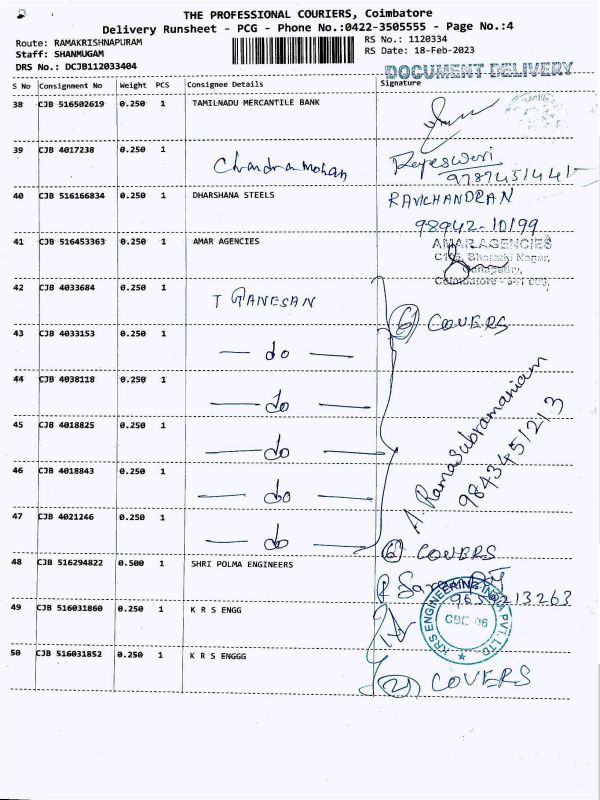 THE PROFESSIONAL COURIERS, Coimbatore
Delivery Runsheet - PCG - Phone No.:0422-3505555 - Page No.:4
Route: RAMAKRISHNAPURAM
RS No.: 1120334
Staff: SHANMUGAM
RS Date: 18-Feb-2023
DRS No.: DCJB112033404
DOCUMENT DELIVERY
S No Consignment No Weight PCS Consignee Details Signature
38 CJB 516502619 0.250 1 TAMILNADU MERCANTILE BANK
39 CJB 4017238 0.250 1 Chandramohan
40 CJB 516166834 0.250 1 DHARSHANA STEELS RAVICHANDRAN
98942-10199
41 CJB 516453363 0.250 1 AMAR AGENCIES AMAR AGENCIES
Bharathi Nagar,
Coimbatore
42 CJB 4033684 0.250 1 T GANESAN
(6) COVERS
43 CJB 4033153 0.250 1 do
44 CJB 4038118 0.250 1 do
45 CJB 4018825 0.250 1 do
A. Ramasubramaniam
9843451213
46 CJB 4018843 0.250 1 do
47 CJB 4021246 0.250 1 do
(6) COVERS
48 CJB 516294822 0.500 1 SHRI POLMA ENGINEERS
49 CJB 516031860 0.250 1 K R S ENGG
KRS ENGINEERING INDIA PVT. LTD
CBE 06
50 CJB 516031852 0.250 1 K R S ENGGG
(2) COVERS